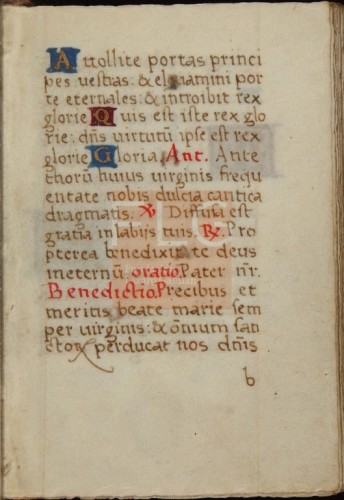 Attollite portas princi
pes vestras: & eleuamini por
te eternales: & introibit rex
glorie Quis est iste rex glo
rie: dn̄s virtutū ipse est rex
glorie Gloria. Ant. Ante
thorū huius virginis frequ
entate nobis dulcia cantica
dragmatis. ℣ Diffusa est
gratia in labijs tuis. ℟. Pro
pterea benedixit te deus
ineternū. oratio. Pater nr̄.
Benedictio. Precibus et
meritis beate marie sem
per virginis: & ōnium san
ctoꝝ perducat nos dn̄s
b